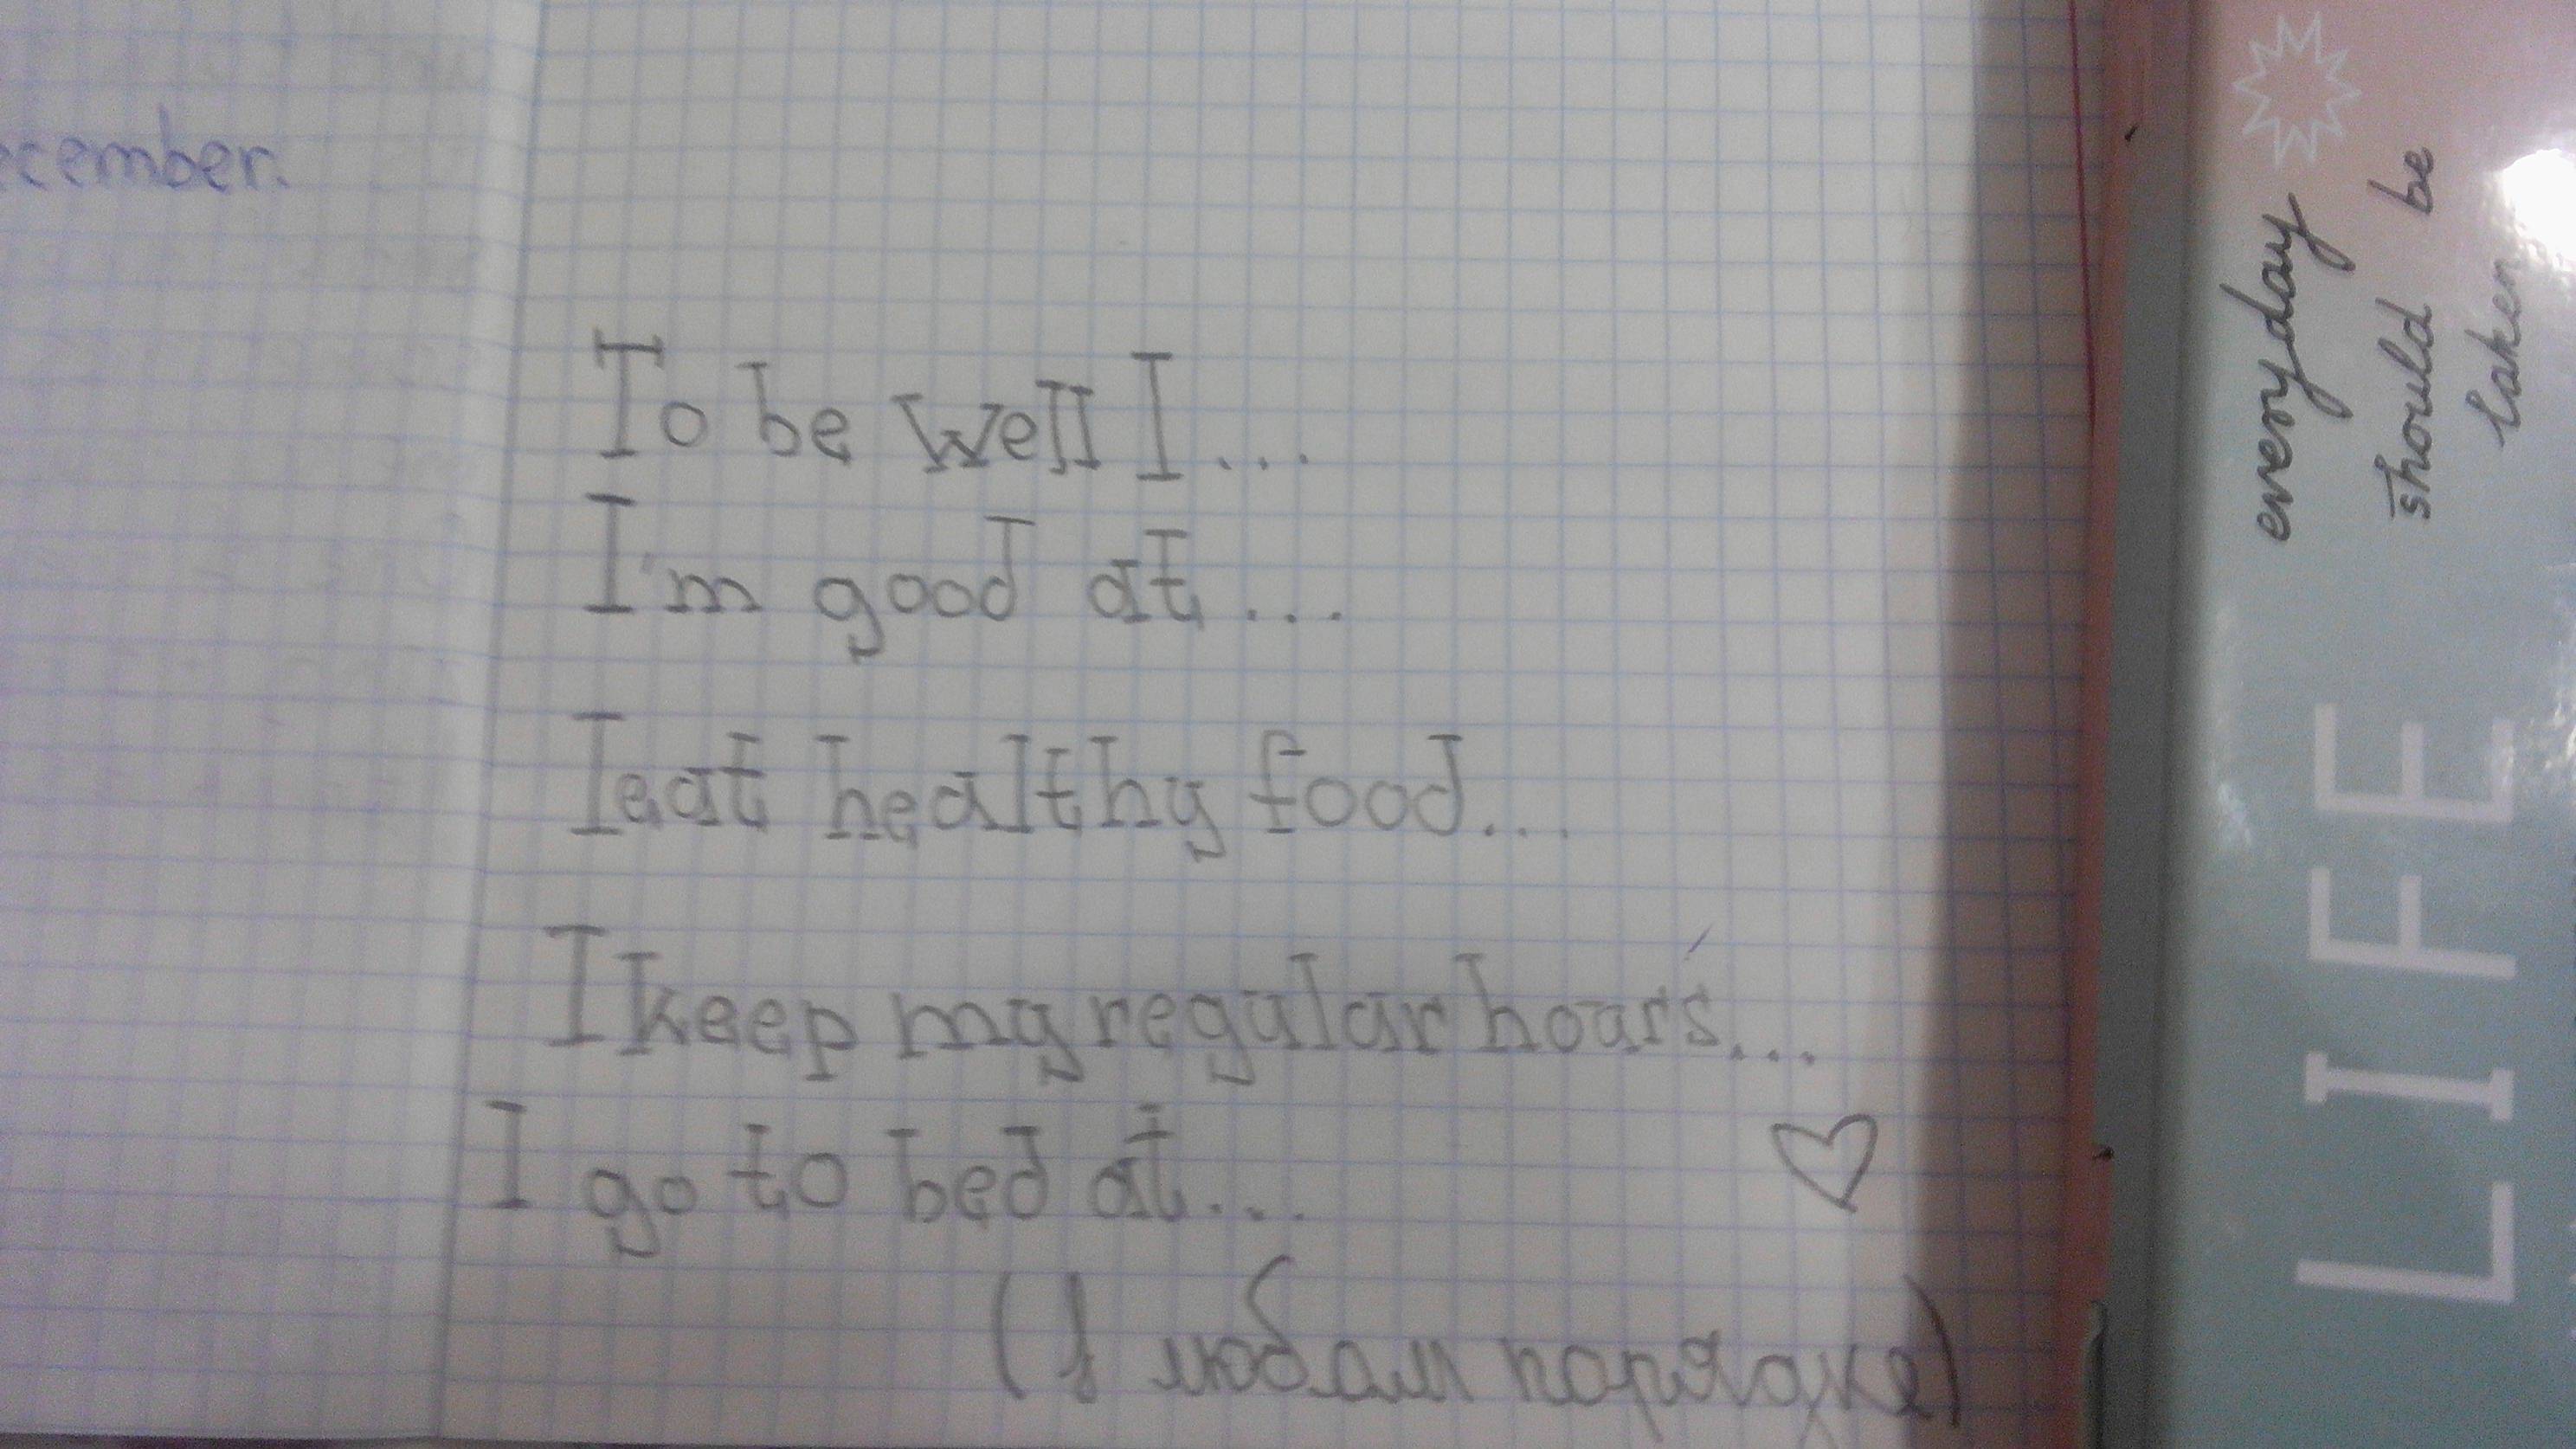 ecember.
To be well I...
I'm good at...
I eat healthy food...
I keep my regular hours...
I go to bed at...
(В любом порядке)
everyday
should be
taken
LIFE